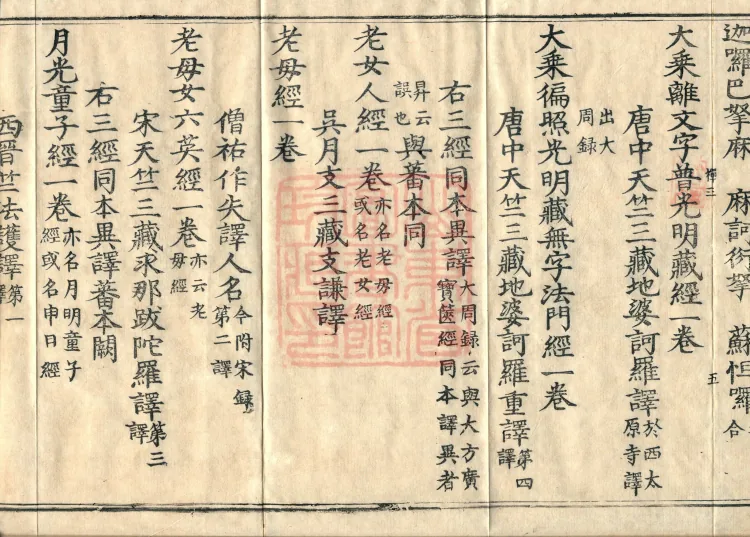 迦囉巴拏麻 麻訶衍拏 蘇怛囉 合
大乘離文字普光明藏經一卷
唐中天竺三藏地婆訶羅譯 於西太原寺譯
出大周録
大乘徧照光明藏無字法門經一卷
唐中天竺三藏地婆訶羅重譯 第四譯
右三經同本異譯 大周録云與大方廣寶篋經同本譯異者
昇云誤也 與蕃本同
老女人經一卷 亦名老母經或名老女經
吳月支三藏支謙譯
老母經一卷
僧祐作失譯人名 今附宋録第二譯
老母女六英經一卷 亦云老母經
宋天竺三藏求那跋陀羅譯 第三譯
右三經同本異譯蕃本闕
月光童子經一卷 亦名月明童子經或名申日經
西晉竺法護譯 第一譯